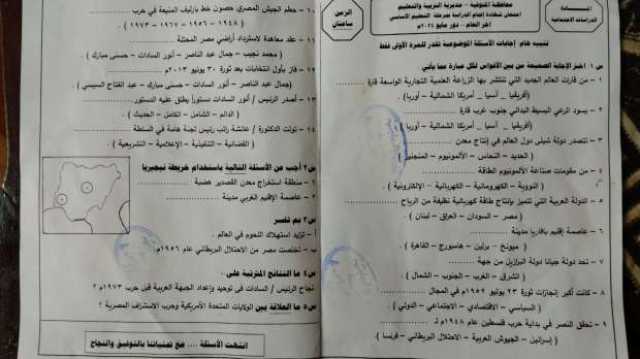 المــادة
الدراسات الاجتماعية
محافظة المنوفية - مديرية التربية والتعليم
امتحان شهادة إتمام الدراسة بمرحلة التعليم الأساسي
آخر العام - دور مايو ٢٠٢٤م
الزمن
ساعتان
تنبيه هام إجابات الأسئلة الموضوعية تقدر للمرة الأولى فقط
س ١: اختر الإجابة الصحيحة من بين الأقواس لكل عبارة مما يأتي
١ - من قارات العالم الجديد التي تنتشر بها الزراعة العلمية التجارية الواسعة قارة
( أفريقيا _ آسيا _ أمريكا الشمالية - أوربا )
٢ - يسود الرعي البسيط البدائي جنوب غرب قارة
( أفريقيا _ آسيا _ أمريكا الشمالية - أوربا ) .
٣ - تتصدر دولة شيلي دول العالم في إنتاج معدن
( الحديد - النحاس - الألمونيوم - المنجنيز )
٤ - من مقومات صناعة الألمونيوم الطاقة
( النووية - الكهرومائية - الكهربائية - الإلكترونية )
٥ - الدولة العربية التي تتميز بإنتاج طاقة كهربائية نظيفة من الرياح
( مصر - السودان - العراق - لبنان )
٦ - عاصمة إقليم بافاريا مدينة
( ميونخ - برلين - هامبورج - القاهرة )
٧ - تحد دولة جيانا دولة البرازيل من جهة
( الشرق - الغرب - الجنوب - الشمال )
٨ - كانت أكبر إنجازات ثورة ٢٣ يوليو ١٩٥٢م في المجال
( السياسي - الاقتصادي - الاجتماعي - الدولي )
٩ - تحقق النصر في بداية حرب فلسطين عام ١٩٤٨م لـ
( إسرائيل - الجيوش العربية - الاحتلال البريطاني - فرنسا )
١٠ - حطم الجيش المصري حصون خط بارليف المنيعة في حرب
( ١٩٤٨ - ١٩٥٦ - ١٩٦٧ - ١٩٧٣ )
١١ - عقد معاهدة لاسترداد أراضي مصر المحتلة
( محمد نجيب - جمال عبد الناصر - أنور السادات - حسني مبارك )
١٢ - فاز بأول انتخابات بعد ثورة ٣٠ يونيو ٢٠١٣م
( جمال عبد الناصر - أنور السادات - حسني مبارك - عبد الفتاح السيسي )
١٣ - أصدر الرئيس / أنور السادات دستوراً يطلق عليه الدستور
( الدائم - الشامل - الكامل - الحديث )
١٤ - تولت الدكتورة / عائشة راتب رئيس لجنة هامة في السلطة
( القضائية - التنفيذية - الإعلامية - التشريعية )
س٢ أجب عن الأسئلة التالية باستخدام خريطة نيجيريا
١ - منطقة استخراج معدن القصدير هضبة
٢ - عاصمة الإقليم الغربي مدينة
س٣ بم تفسر
أ - تزايد استهلاك اللحوم في العالم .
ب - تخلصت مصر من الاحتلال البريطاني عام ١٩٥٦م .
س ٤ ما النتائج المترتبة على :
نجاح الرئيس / السادات في توحيد وإعداد الجبهة العربية قبل حرب ١٩٧٣م ؟
س ٥ ما العلاقة بين الولايات المتحدة الأمريكية وحرب الاستنزاف المصرية ؟
انتهت الأسئلة .... مع تمنياتنا بالتوفيق والنجاح